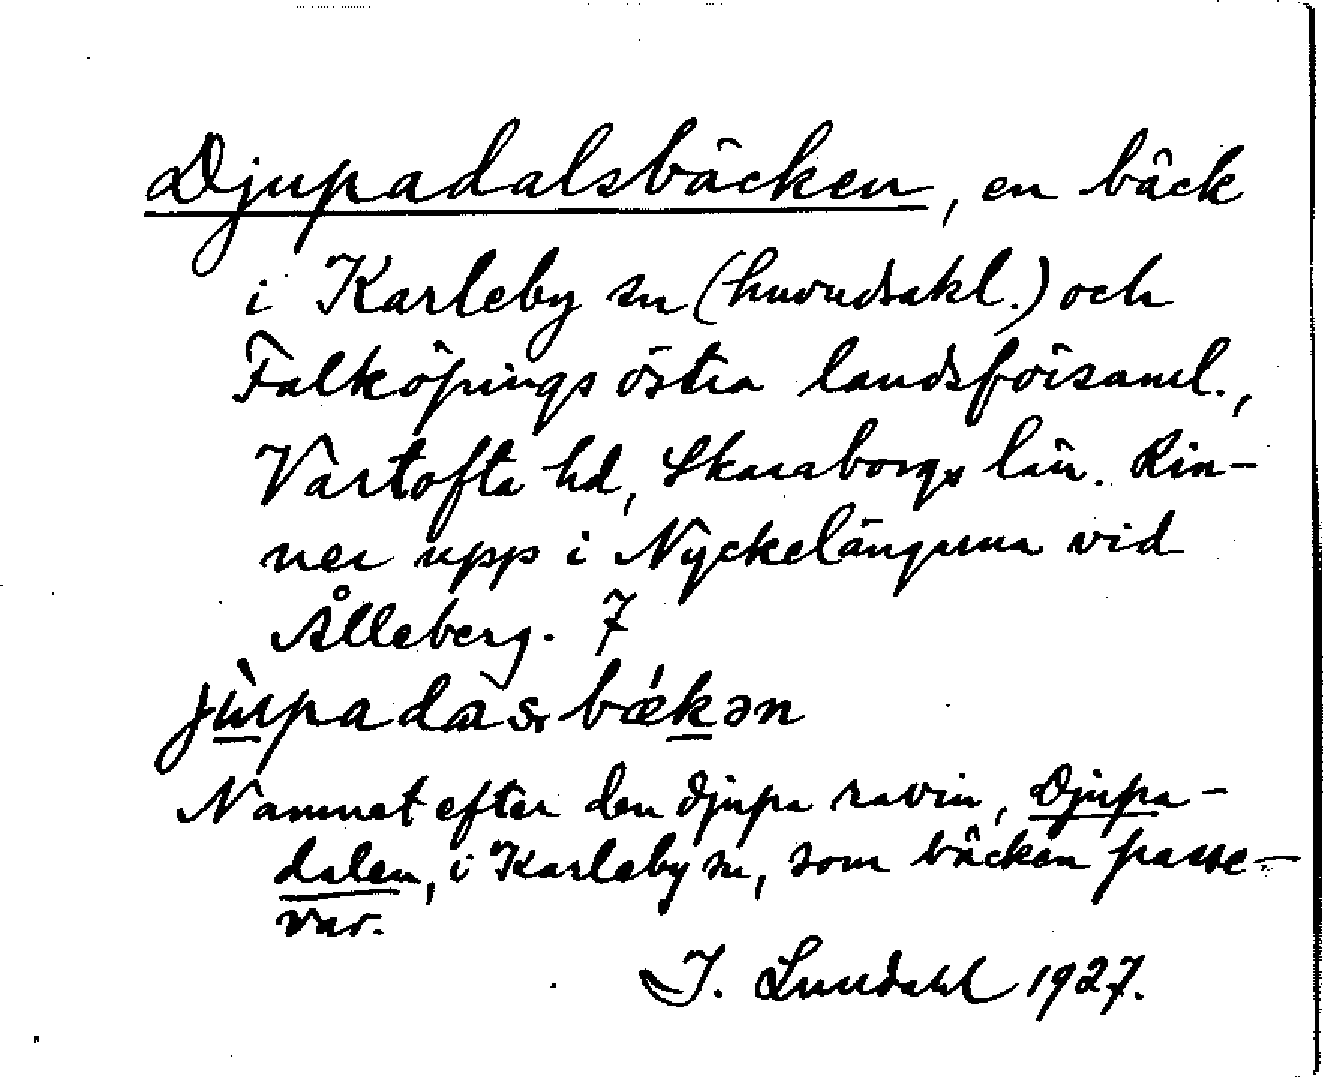 Djupadalsbäcken, en bäck
i Karleby sn (huvudsakl.) och
Falköpings östra landsförsaml.,
Vartofta hd, Skaraborgs län. Rin-
ner upp i Nyckelängarna vid
Ålleberg. 7
Namnet efter den djupa ravin, Djupa-
dalen, i Karleby sn, som bäcken passe-
rar.
I. Lundahl 1927.